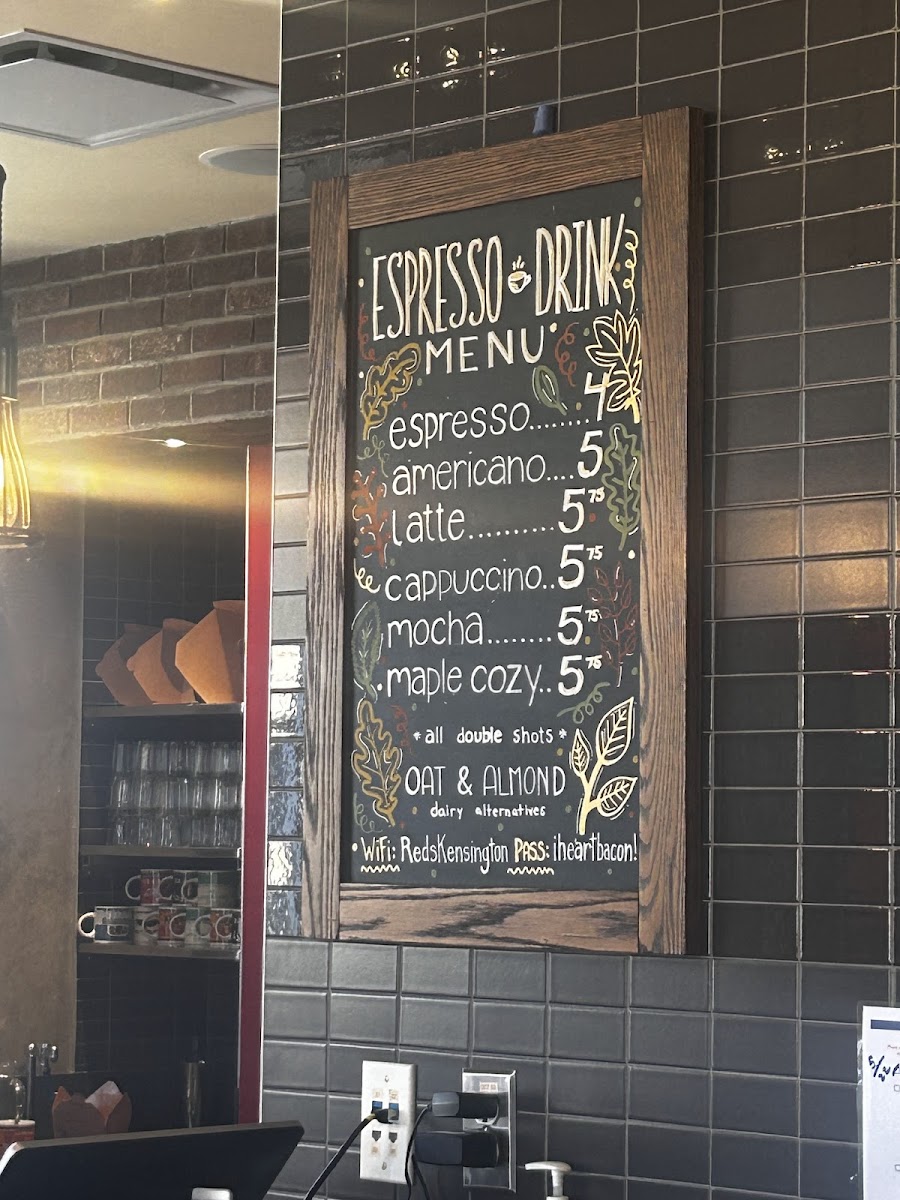 ESPRESSO DRINK
MENU
espresso........4
americano....5
latte..........5.75
cappuccino..5.75
mocha........5.75
maple cozy..5.75
*all double shots*
OAT & ALMOND
dairy alternatives
WiFi: RedsKensington PASS: iheartbacon!